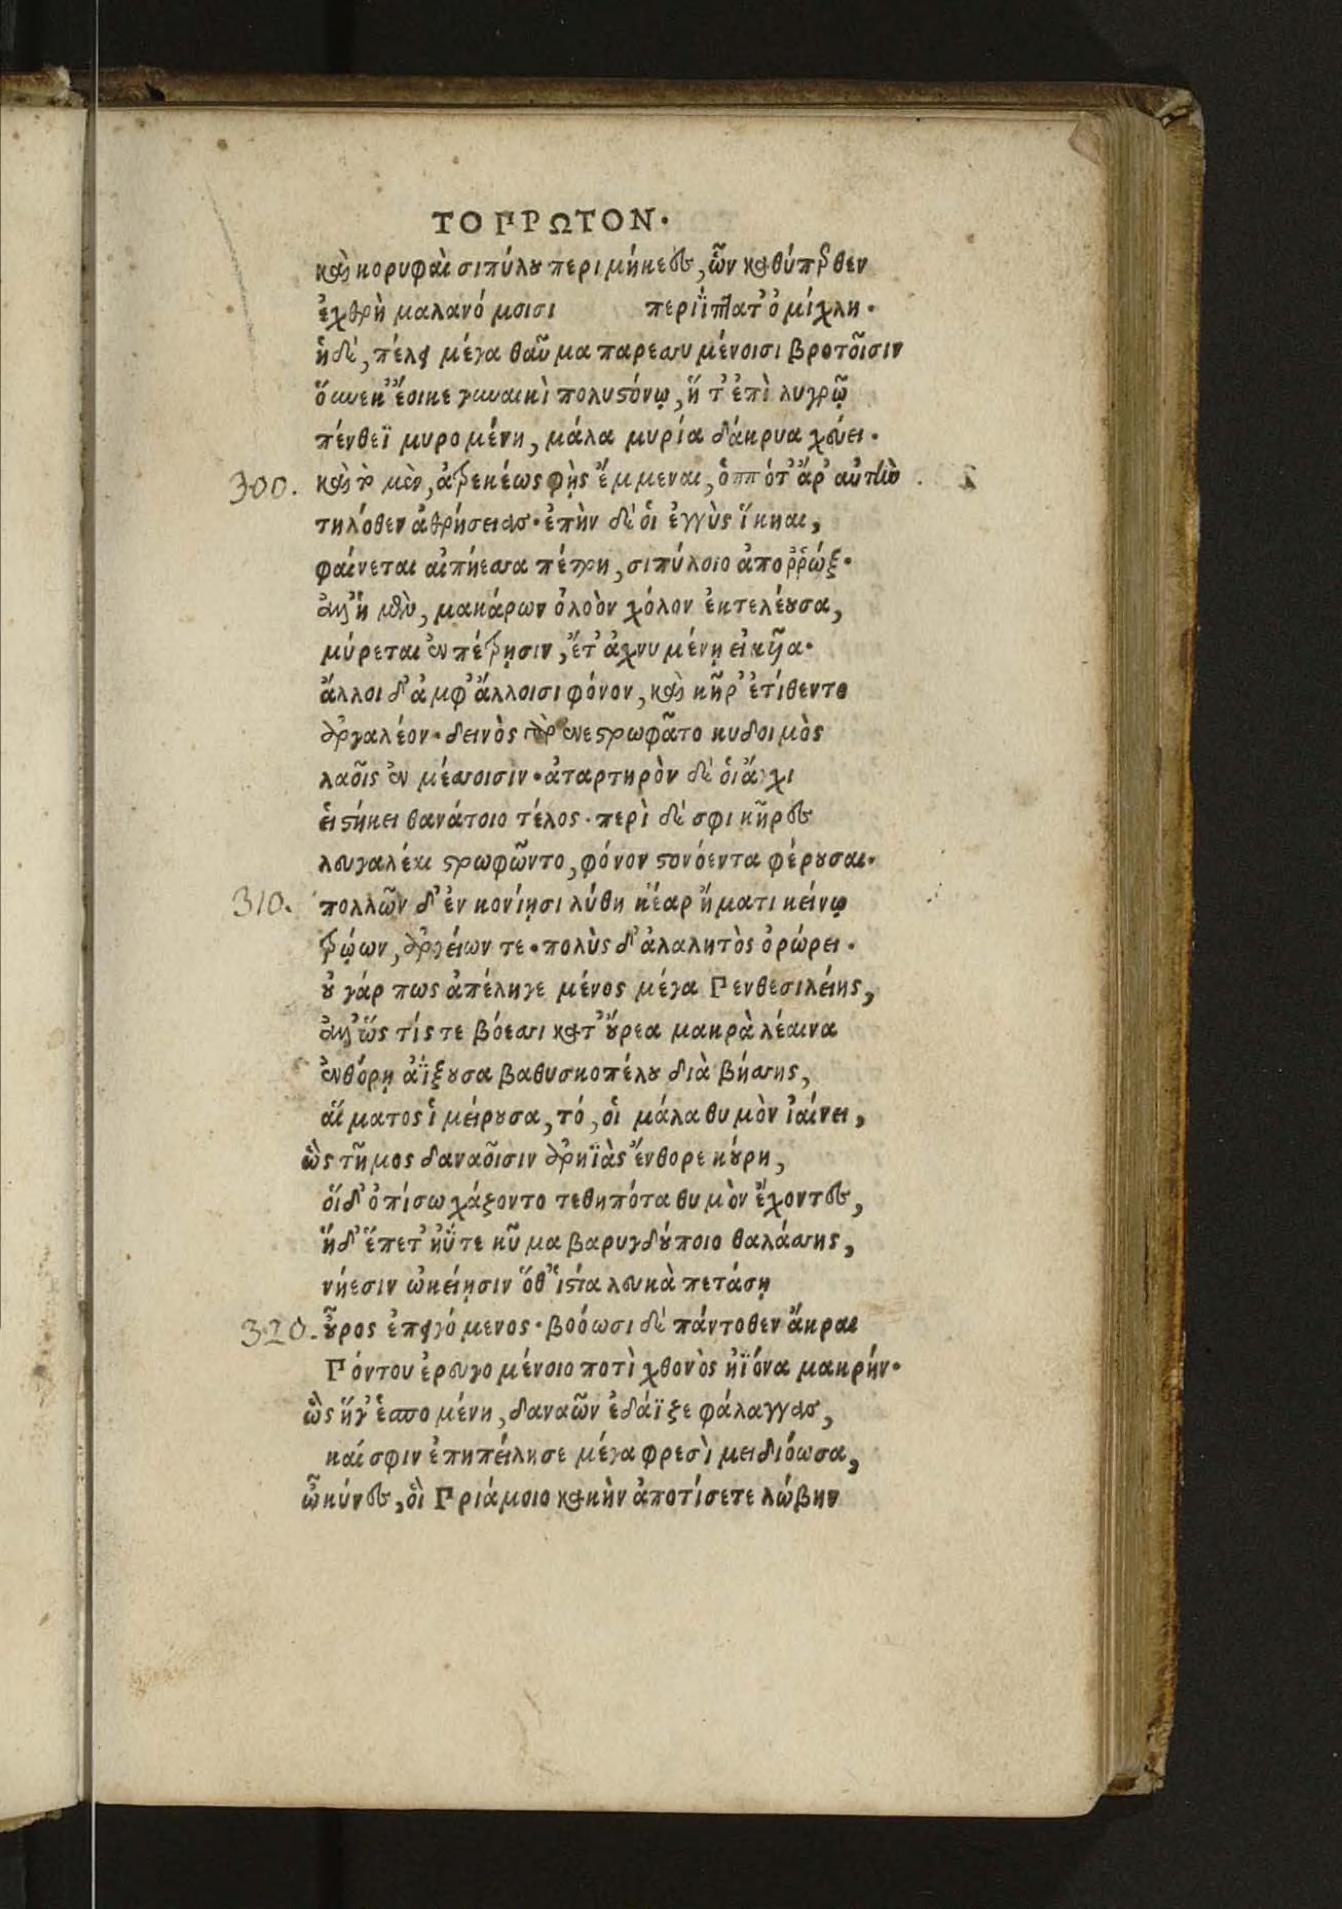 ΤΟ ΠΡΩΤΟΝ.
καὶ κορυφαὶ σιπύλου περιμήκεες, ὧν καθύπερθεν
ἐχθρὴ μαλανόμοισι περιΐπτατ' ὀμίχλη.
ἡ δὲ, πέλει μέγα θαῦμα παρεσσυμένοισι βροτοῖσιν
οὕνεκ' ἔοικε γυναικὶ πολυστόνῳ, ἥ τ' ἐπὶ λυγρῷ
πένθεϊ μυρομένη, μάλα μυρία δάκρυα χεύει.
300. καὶ τὸ μὲν, ἀτρεκέως φῂς ἔμμεναι, ὁππότ' ἄρ' αὐτὴν
τηλόθεν ἀθρήσειας. ἐπὴν δέ οἱ ἐγγὺς ἵκηαι,
φαίνεται αἰπήεσσα πέτρη, σιπύλοιο ἀποῤῥώξ.
ἀλλ' ἡ μὲν, μακάρων ὀλοὸν χόλον ἐκτελέουσα,
μύρεται ἐν πέτρῃσιν, ἔτ' ἀχνυμένῃ εἰκυῖα.
ἄλλοι δ' ἀμφ' ἄλλοισι φόνον, καὶ κῆρ' ἐτίθεντο
ἀργαλέον. δεινὸς γὰρ ἐνεστρωφᾶτο κυδοιμὸς
λαοῖς ἐν μέσσοισιν. ἀταρτηρὸν δέ οἱ ἄγχι
εἱστήκει θανάτοιο τέλος. περὶ δέ σφι κῆρες
λευγαλέαι στρωφῶντο, φόνον στονόεντα φέρουσαι.
310. πολλῶν δ' ἐν κονίῃσι λύθη κέαρ ἤματι κείνῳ
τρώων, ἀργείων τε. πολὺς δ' ἀλαλητὸς ὀρώρει.
οὐ γάρ πως ἀπέληγε μένος μέγα Πενθεσιλείης,
ἀλλ' ὥς τίς τε βόεσσι κατ' οὔρεα μακρὰ λέαινα
ἐνθόρῃ ἀΐξουσα βαθυσκοπέλου διὰ βήσσης,
αἵματος ἱμείρουσα, τό, οἱ μάλα θυμὸν ἰαίνει,
ὣς τῆμος δαναοῖσιν ἀρηϊὰς ἔνθορε κούρη,
οἵ δ' ὀπίσω χάζοντο τεθηπότα θυμὸν ἔχοντες,
ἥ δ' ἕπετ' ἠΰτε κῦμα βαρυγδούποιο θαλάσσης,
νήεσιν ὠκείῃσιν ὅθ' ἱστία λευκὰ πετάσῃ
320. οὖρος ἐπειγόμενος. βοόωσι δὲ πάντοθεν ἄκραι
Πόντου ἐρευγομένοιο ποτὶ χθονὸς ἠϊόνα μακρήν.
ὣς ἥγ' ἑσπομένη, δαναῶν ἐδάϊξε φάλαγγας,
καί σφιν ἐπηπείλησε μέγα φρεσὶ μειδιόωσα,
ὦ κύνες, οἳ Πριάμοιο κακὴν ἀποτίσετε λώβην